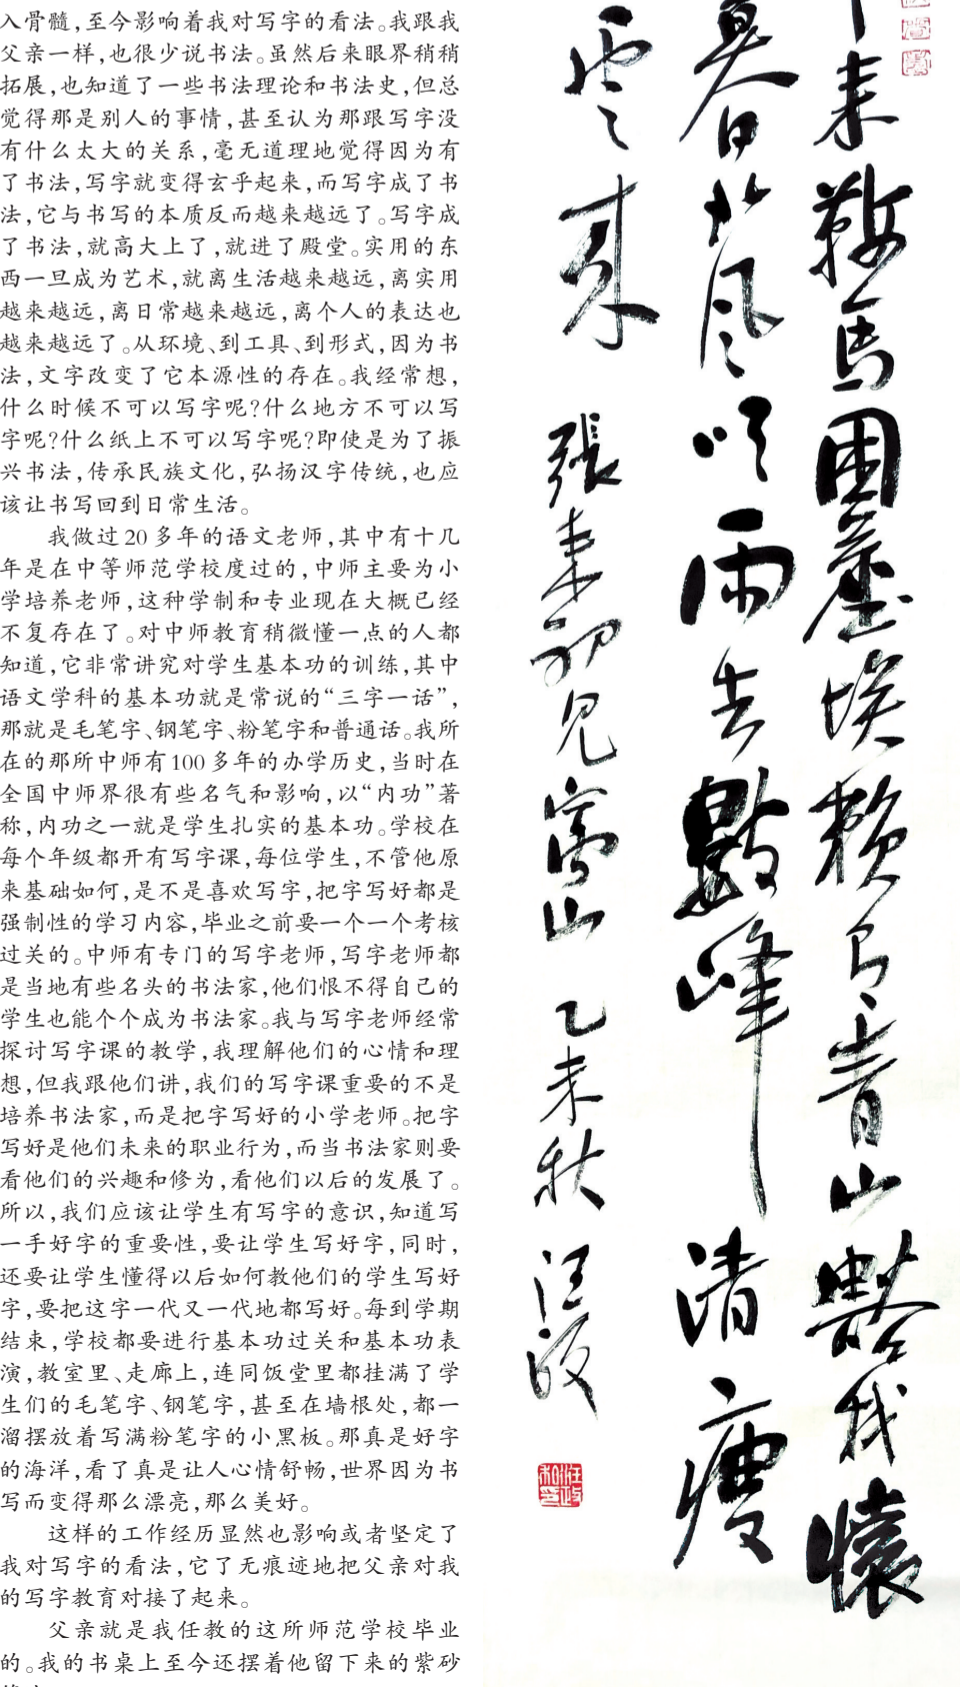 入骨髓,至今影响着我对写字的看法。我跟我
父亲一样,也很少说书法。虽然后来眼界稍稍
拓展,也知道了一些书法理论和书法史,但总
觉得那是别人的事情,甚至认为那跟写字没
有什么太大的关系,毫无道理地觉得因为有
了书法,写字就变得玄乎起来,而写字成了书
法,它与书写的本质反而越来越远了。写字成
了书法,就高大上了,就进了殿堂。实用的东
西一旦成为艺术,就离生活越来越远,离实用
越来越远,离日常越来越远,离个人的表达也
越来越远了。从环境、到工具、到形式,因为书
法,文字改变了它本源性的存在。我经常想,
什么时候不可以写字呢?什么地方不可以写
字呢?什么纸上不可以写字呢?即使是为了振
兴书法,传承民族文化,弘扬汉字传统,也应
该让书写回到日常生活。
我做过20多年的语文老师,其中有十几
年是在中等师范学校度过的,中师主要为小
学培养老师,这种学制和专业现在大概已经
不复存在了。对中师教育稍微懂一点的人都
知道,它非常讲究对学生基本功的训练,其中
语文学科的基本功就是常说的“三字一话”,
那就是毛笔字、钢笔字、粉笔字和普通话。我所
在的那所中师有100多年的办学历史,当时在
全国中师界很有些名气和影响,以“内功”著
称,内功之一就是学生扎实的基本功。学校在
每个年级都开有写字课,每位学生,不管他原
来基础如何,是不是喜欢写字,把字写好都是
强制性的学习内容,毕业之前要一个一个考核
过关的。中师有专门的写字老师,写字老师都
是当地有些名头的书法家,他们恨不得自己的
学生也能个个成为书法家。我与写字老师经常
探讨写字课的教学,我理解他们的心情和理
想,但我跟他们讲,我们的写字课重要的不是
培养书法家,而是把字写好的小学老师。把字
写好是他们未来的职业行为,而当书法家则要
看他们的兴趣和修为,看他们以后的发展了。
所以,我们应该让学生有写字的意识,知道写
一手好字的重要性,要让学生写好字,同时,
还要让学生懂得以后如何教他们的学生写好
字,要把这字一代又一代地都写好。每到学期
结束,学校都要进行基本功过关和基本功表
演,教室里、走廊上,连同饭堂里都挂满了学
生们的毛笔字、钢笔字,甚至在墙根处,都一
溜摆放着写满粉笔字的小黑板。那真是好字
的海洋,看了真是让人心情舒畅,世界因为书
写而变得那么漂亮,那么美好。
这样的工作经历显然也影响或者坚定了
我对写字的看法,它了无痕迹地把父亲对我
的写字教育对接了起来。
父亲就是我任教的这所师范学校毕业
的。我的书桌上至今还摆着他留下来的紫砂
来鞍馬困塵埃賴有青山豁我懷
暮北風吹雨去數峰清瘦
雲來
張耒初見嵩山 乙未秋 汪政